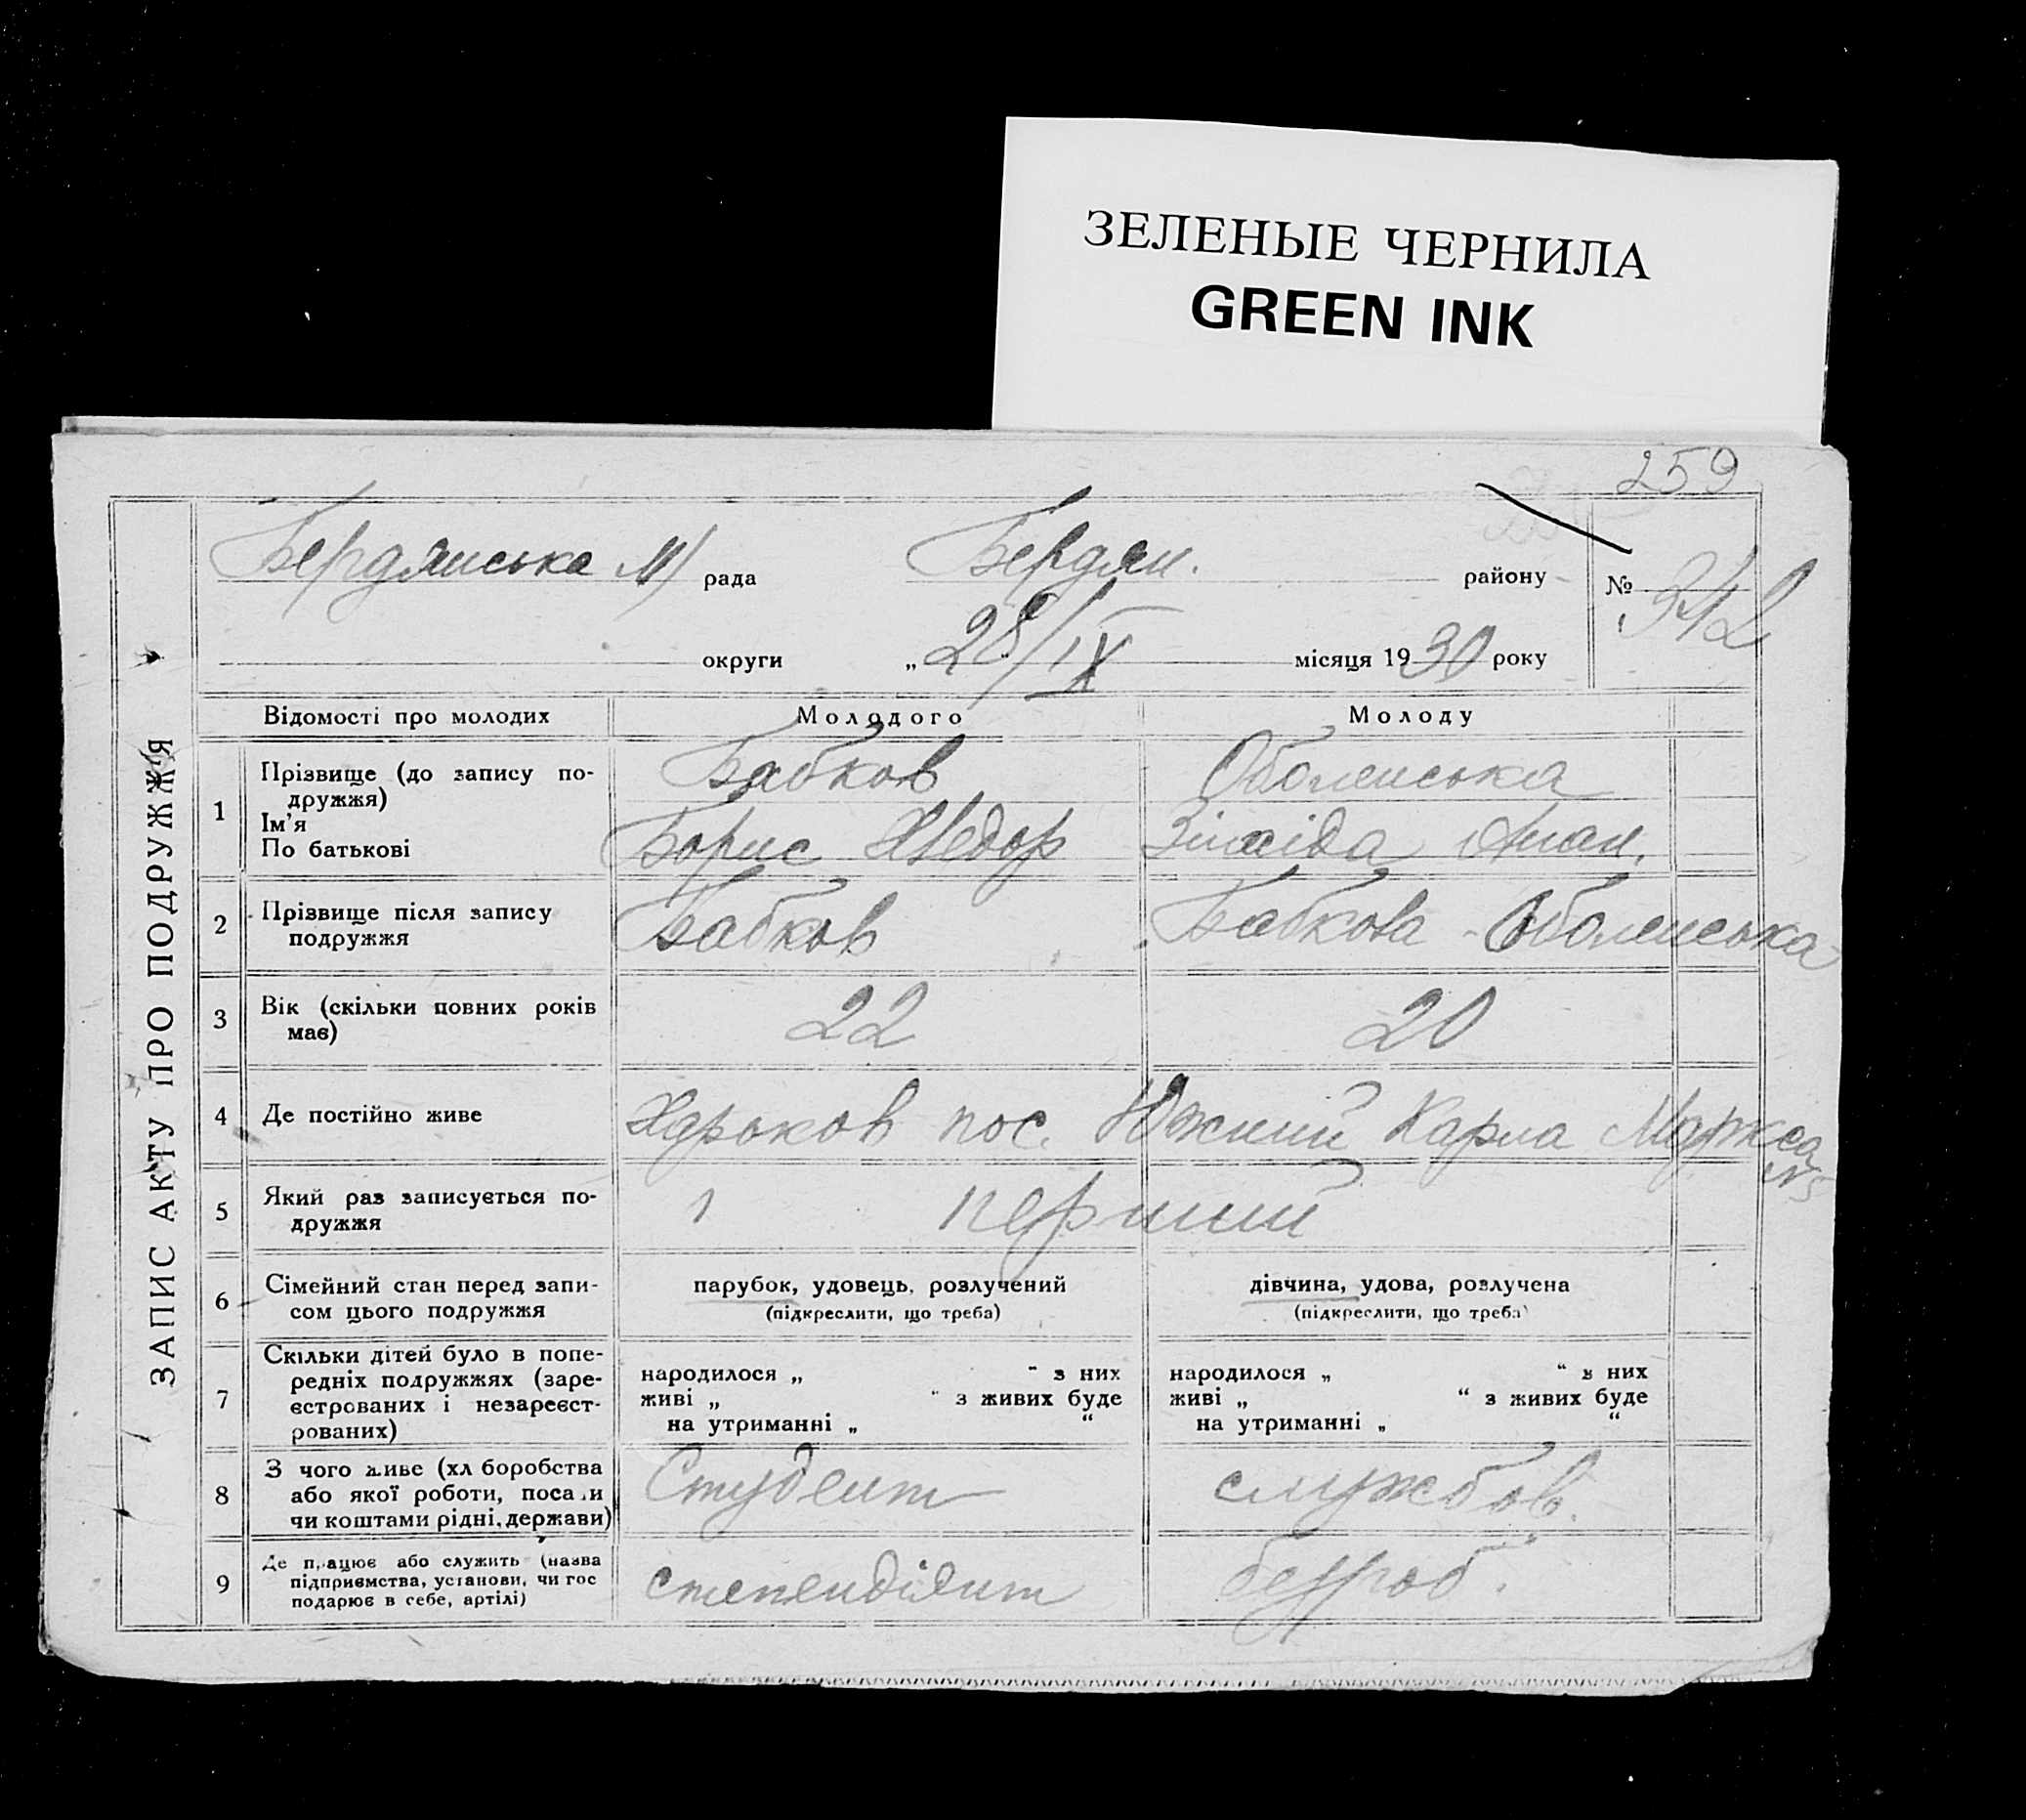 ЗЕЛЕНЫЕ ЧЕРНИЛА
GREEN INK
259
ЗАПИС АКТУ ПРО ПОДРУЖЖЯ
Бердянська М/ рада Бердян. району № 342
округи „28/IX місяця 1930 року
Відомості про молодих Молодого Молоду
1 Прізвище (до запису по-
дружжя)
Ім'я
По батькові
Бабков
Борис Хведор
Оболенська
Зінаіда
2 Прізвище після запису
подружжя
Бабков
Бабкова - Оболенська
3 Вік (скільки повних років
має)
22
20
4 Де постійно живе
Харьков пос. Южний Карла Маркса
5 Який раз записується по-
дружжя
1 перший
6 Сімейний стан перед запи-
сом цього подружжя
парубок, удовець, розлучений
(підкреслити, що треба)
дівчина, удова, розлучена
(підкреслити, що треба)
7 Скільки дітей було в попе-
редніх подружжях (заре-
єстрованих і незареєст-
рованих)
народилося „ “ з них
живі „ “ з живих буде
на утриманні „ “
народилося „ “ з них
живі „ “ з живих буде
на утриманні „ “
8 З чого живе (хліборобства
або якої роботи, посади
чи коштами рідні, держави)
Студент
службов.
9 Де працює або служить (назва
підприємства, установи, чи гос
подарює в себе, артілі)
степендіянт
безроб.